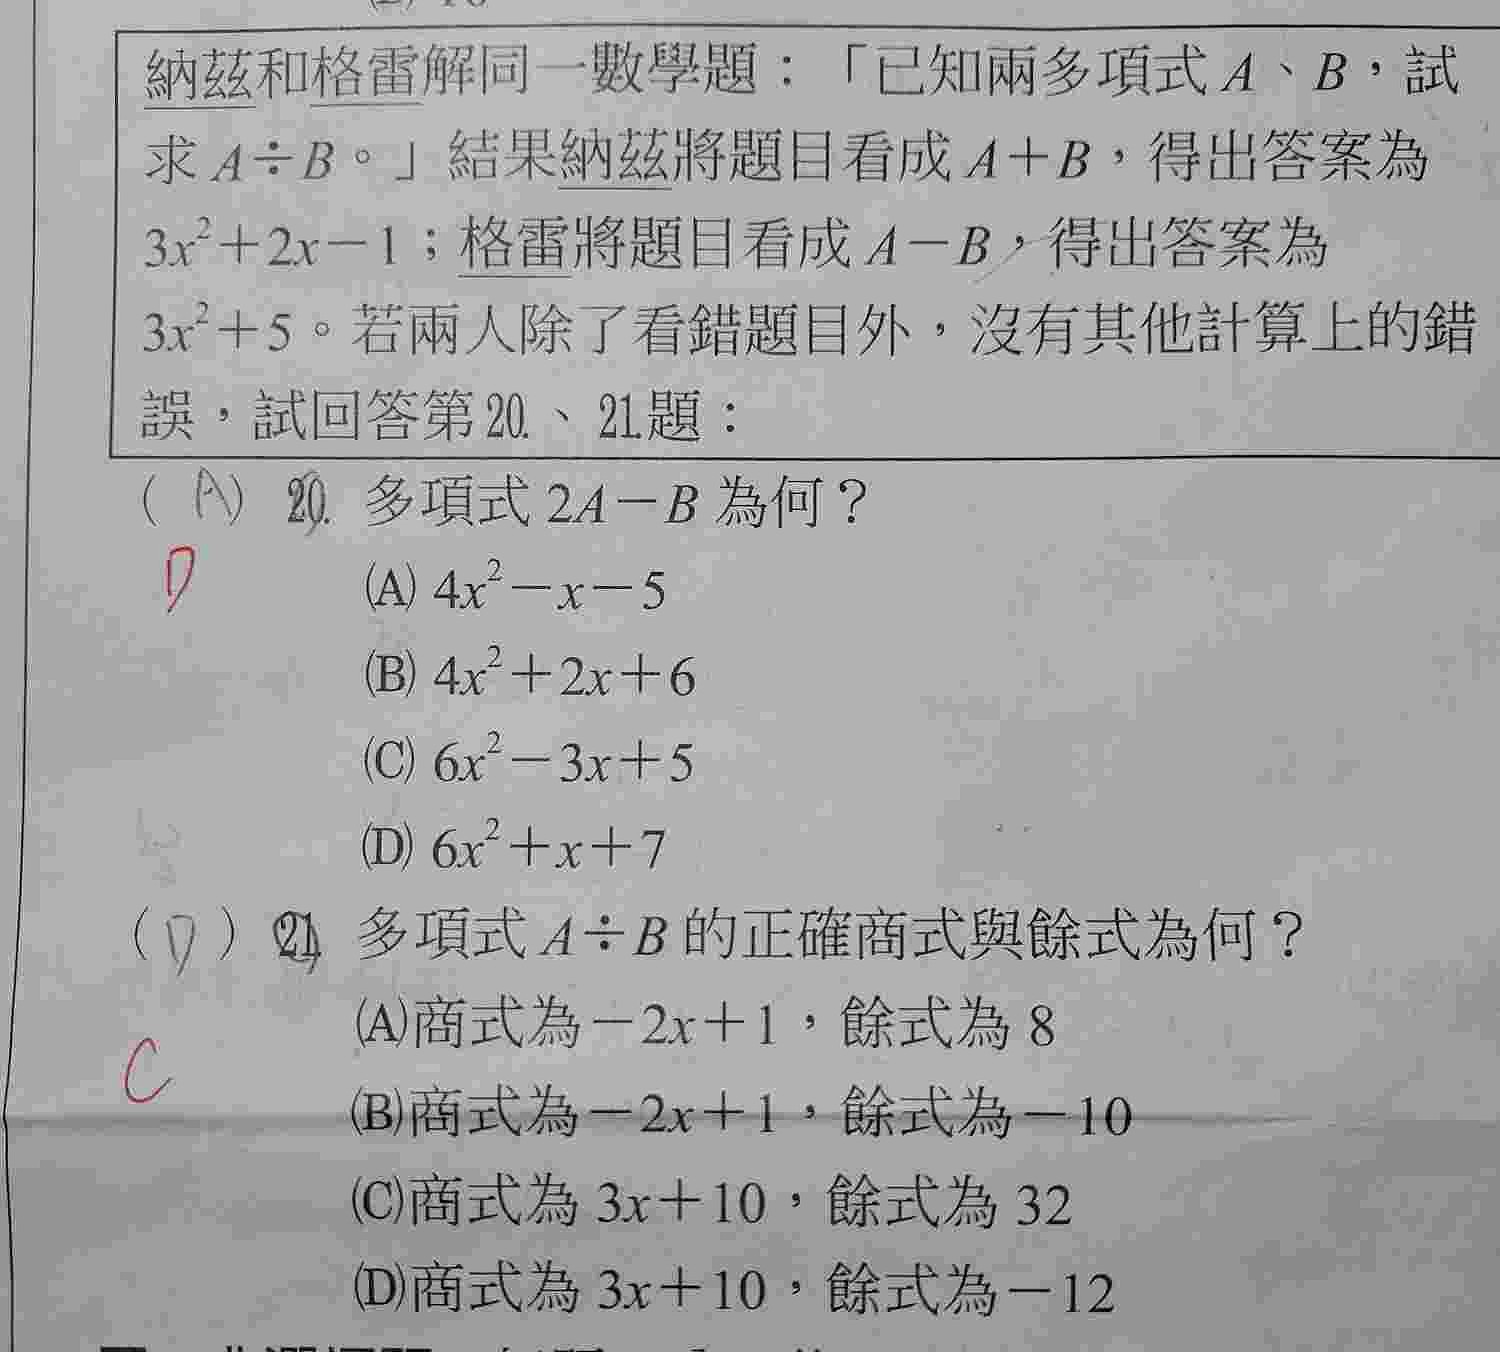 納茲和格雷解同一數學題：「已知兩多項式 A、B，試
求 A÷B。」結果納茲將題目看成 A＋B，得出答案為
3x²＋2x－1；格雷將題目看成 A－B，得出答案為
3x²＋5。若兩人除了看錯題目外，沒有其他計算上的錯
誤，試回答第 20.、21.題：
( A ) 20. 多項式 2A－B 為何？
D
(A) 4x²－x－5
(B) 4x²＋2x＋6
(C) 6x²－3x＋5
(D) 6x²＋x＋7
( D ) 21. 多項式 A÷B 的正確商式與餘式為何？
(A)商式為－2x＋1，餘式為 8
C
(B)商式為－2x＋1，餘式為－10
(C)商式為 3x＋10，餘式為 32
(D)商式為 3x＋10，餘式為－12